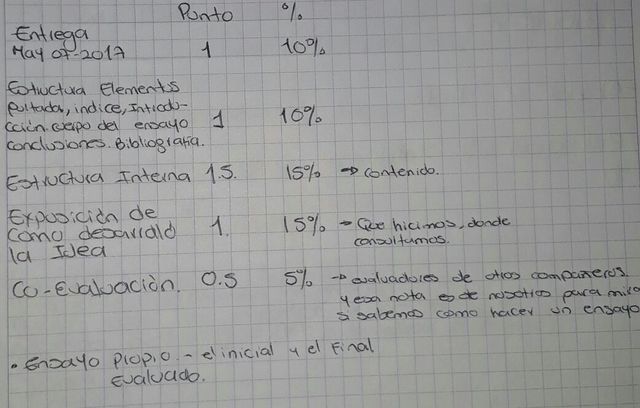 Punto %
Entrega
May 07-2017 1 10%
Estructura Elementos
Portada, indice, Introdu-
cción, cuerpo del ensayo 1 10%
conclusiones. Bibliografia.
Estructura Interna 1.5. 15% → contenido.
Exposición de
como desarrolló 1. 15% - Que hicimos, donde
la Idea consultamos.
Co-Evaluación. 0.5 5% → evaluadores de otros compañeros.
y esa nota es de nosotros para mirar
si sabemos como hacer un ensayo
• Ensayo Propio. - el inicial y el Final
Evaluado.